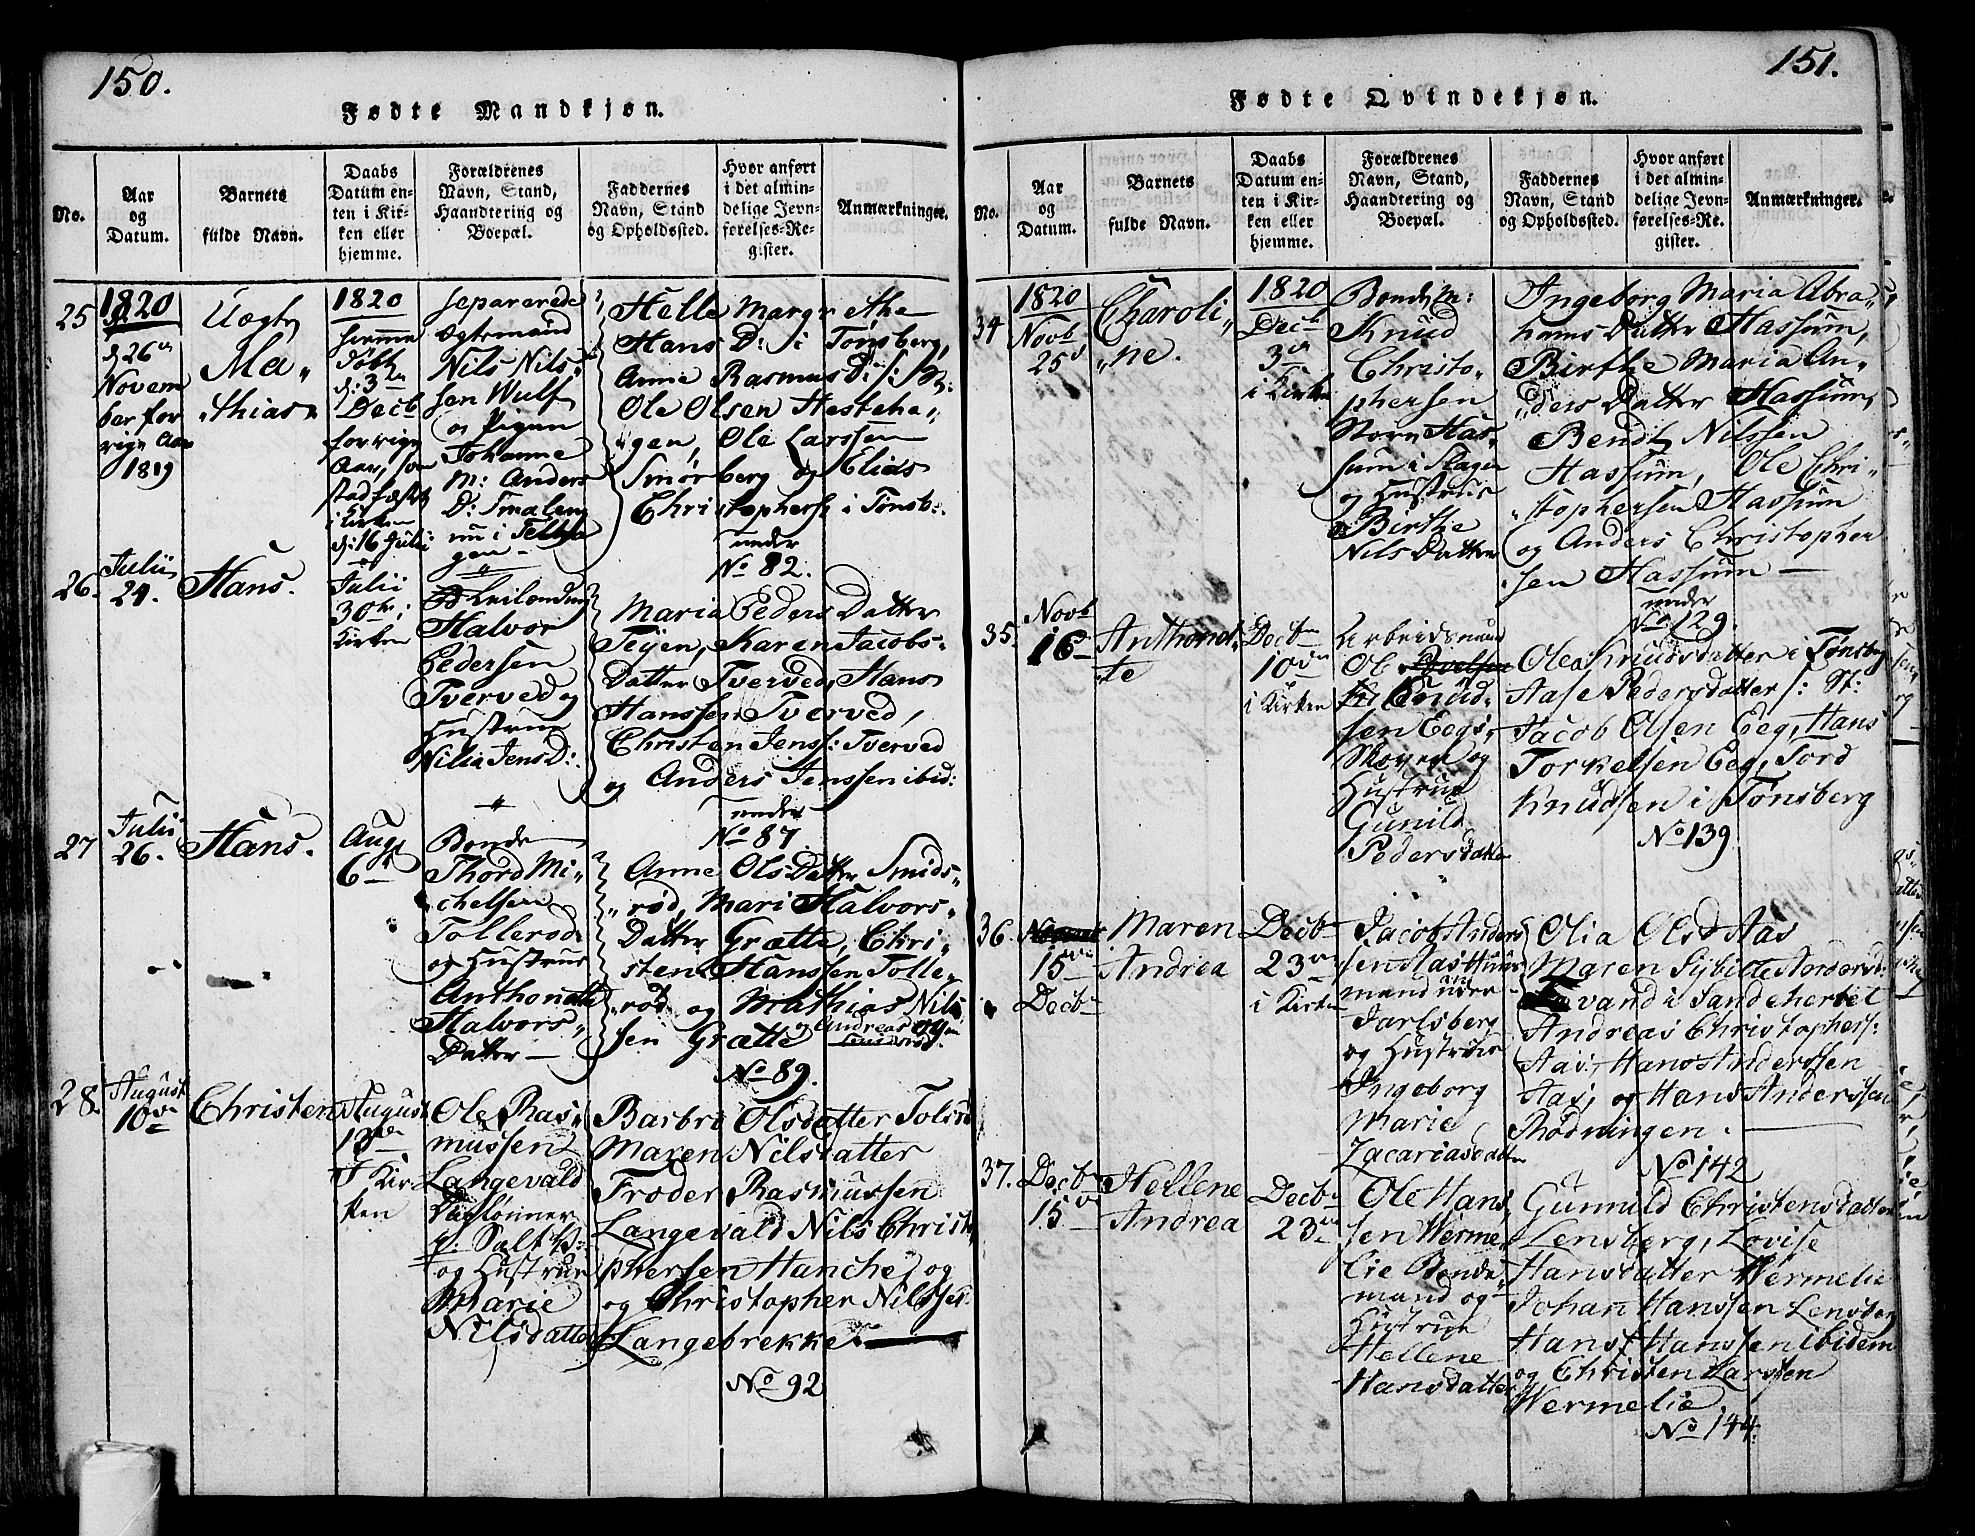 150.
Fødte Mandkjøn.
No.
Aar
og
Datum.
Barnets
fulde Navn.
Daabs
Datum en-
ten i Kir-
ken eller
hjemme.
Forældrenes
Navn, Stand,
Haandtering og
Boepæl.
Faddernes
Navn, Stand
og Opholdssted.
Hvor anført
i det almin-
delige Jevn-
førelses-Re-
gister.
Anmærkninger.
25
1820
26
Novem
ber for
rige Aar
1819
Uægte
Ma„
thias
1820
hjemme
døbt
d: 3
Decb
forrige
Aar,
stadfæst
i Kirken
d: 16 Julii
separerede
Nils Nils„
sen Wulf
og Pigen
Johanne
M: Anders
D:
Helle Margrethe
Hans D: i Tønsberg,
Anne Rasmus D:
Ole Olsen Hesteha„
gen, Ole Larssen
Smørberg og Elias
Christophers: i Tønsb:
under
No 82.
26.
Julii
24.
Hans.
Julii
30
Kirken
Halvor
Pedersen
Tverved og
Hustrue
Nilia Jens D:
Maria Peders Datter
Teijen, Karen Jacobs-
Datter Tverved, Hans
Hanssen Tverved,
Christen Jenss: Tverved
og Anders Jenssen ibid:
under
No 87
27
Julii
26.
Hans.
Aug
6
Bonde
Thord Mi„
chelsen
Tollerod
og Hustrue
Anthonette
Halvors„
Datter
Anne Ols Datter Smids„
rød, Mari Halvors„
Datter Grætte, Chri„
sten Hanssen Tolle„
rød og Mathias Nils
sen Grætte og Andreas
No 89.
28.
August
10
Christen
August
13
I Kir„
ken
Ole Ras„
mussen
Langevald
Daglønner
p: Salt V:
og Hustrue
Marie
Nilsdatter
Barbro Olsdatter
Maren Nilsdatter
Froder Rasmussen
Langevald Nils Christo
phersen Hanche, og
og Christopher Nilssen
Langebrekke.
No 92
151.
Fødte Qvindekjøn.
No.
Aar
og
Datum.
Barnets
fulde Navn.
Daabs
Datum en-
ten i Kir-
ken eller
hjemme.
Forældrenes
Navn, Stand,
Haandtering og
Boepæl.
Faddernes
Navn, Stand
og Opholdssted.
Hvor anført
i det almin-
delige Jevn-
førelses-Re-
gister.
Anmærkninger.
34
1820
Novb
25
Charoli„
„ne.
1820
Decb
3
i Kirken
Bonde
Knud
Christo„
phersen
Store Has„
sum i Slagen
og Hustrue
Birthe
Nils Datter
Ingeborg Maria Abra„
hams Datter Hassum,
Birthe Maria An„
„ders Datter Hassum,
Bendt Nilssen
Hassum, Ole Chri„
„stophersen Hassum
og Anders Christopher
sen Hassum
under
No 129.
35.
Novb
16
Anthonet„
te
Decb
10
i Kirken
Arbeidsmand
Ole
Knud„
sen Eegs„
Skoven og
Hustrue
Gunild
Pedersdatter
Olea Knudsdatter i Tønsberg
Aase Pedersdatter /: St:
Jacob Olsen Eeg, Hans
Torkelsen Eeg, Tord
Knudsen i Tønsberg
No 139.
36.
15
Decb
Maren
Andrea
Decb
23
i Kirken
Jacob Anders
sen Aas Huus„
mand under
Jarlsberg
og Hustrue
Ingeborg
Marie
Zacariasdatter
Olia Olsd Aas
Maren Sybille Andersd:
Andreas Christophers:
Aas, Hans Anderssen
Aas, og Hans Anderssen
Rødningen.
No 142
37.
Decb
15
Hellene
Andrea
Decb
23
Ole Hans„
sen Werme„
lie Bonde„
mand og
Hustrue
Hellene
Hansdatter
Gunnild Christensdatter
Lensberg, Lovise
Hansdatter Wermelie
Johan Hanssen Lensberg
Hans Hanssen ibidem
og Christen Larssen
Wermelie
No 144.